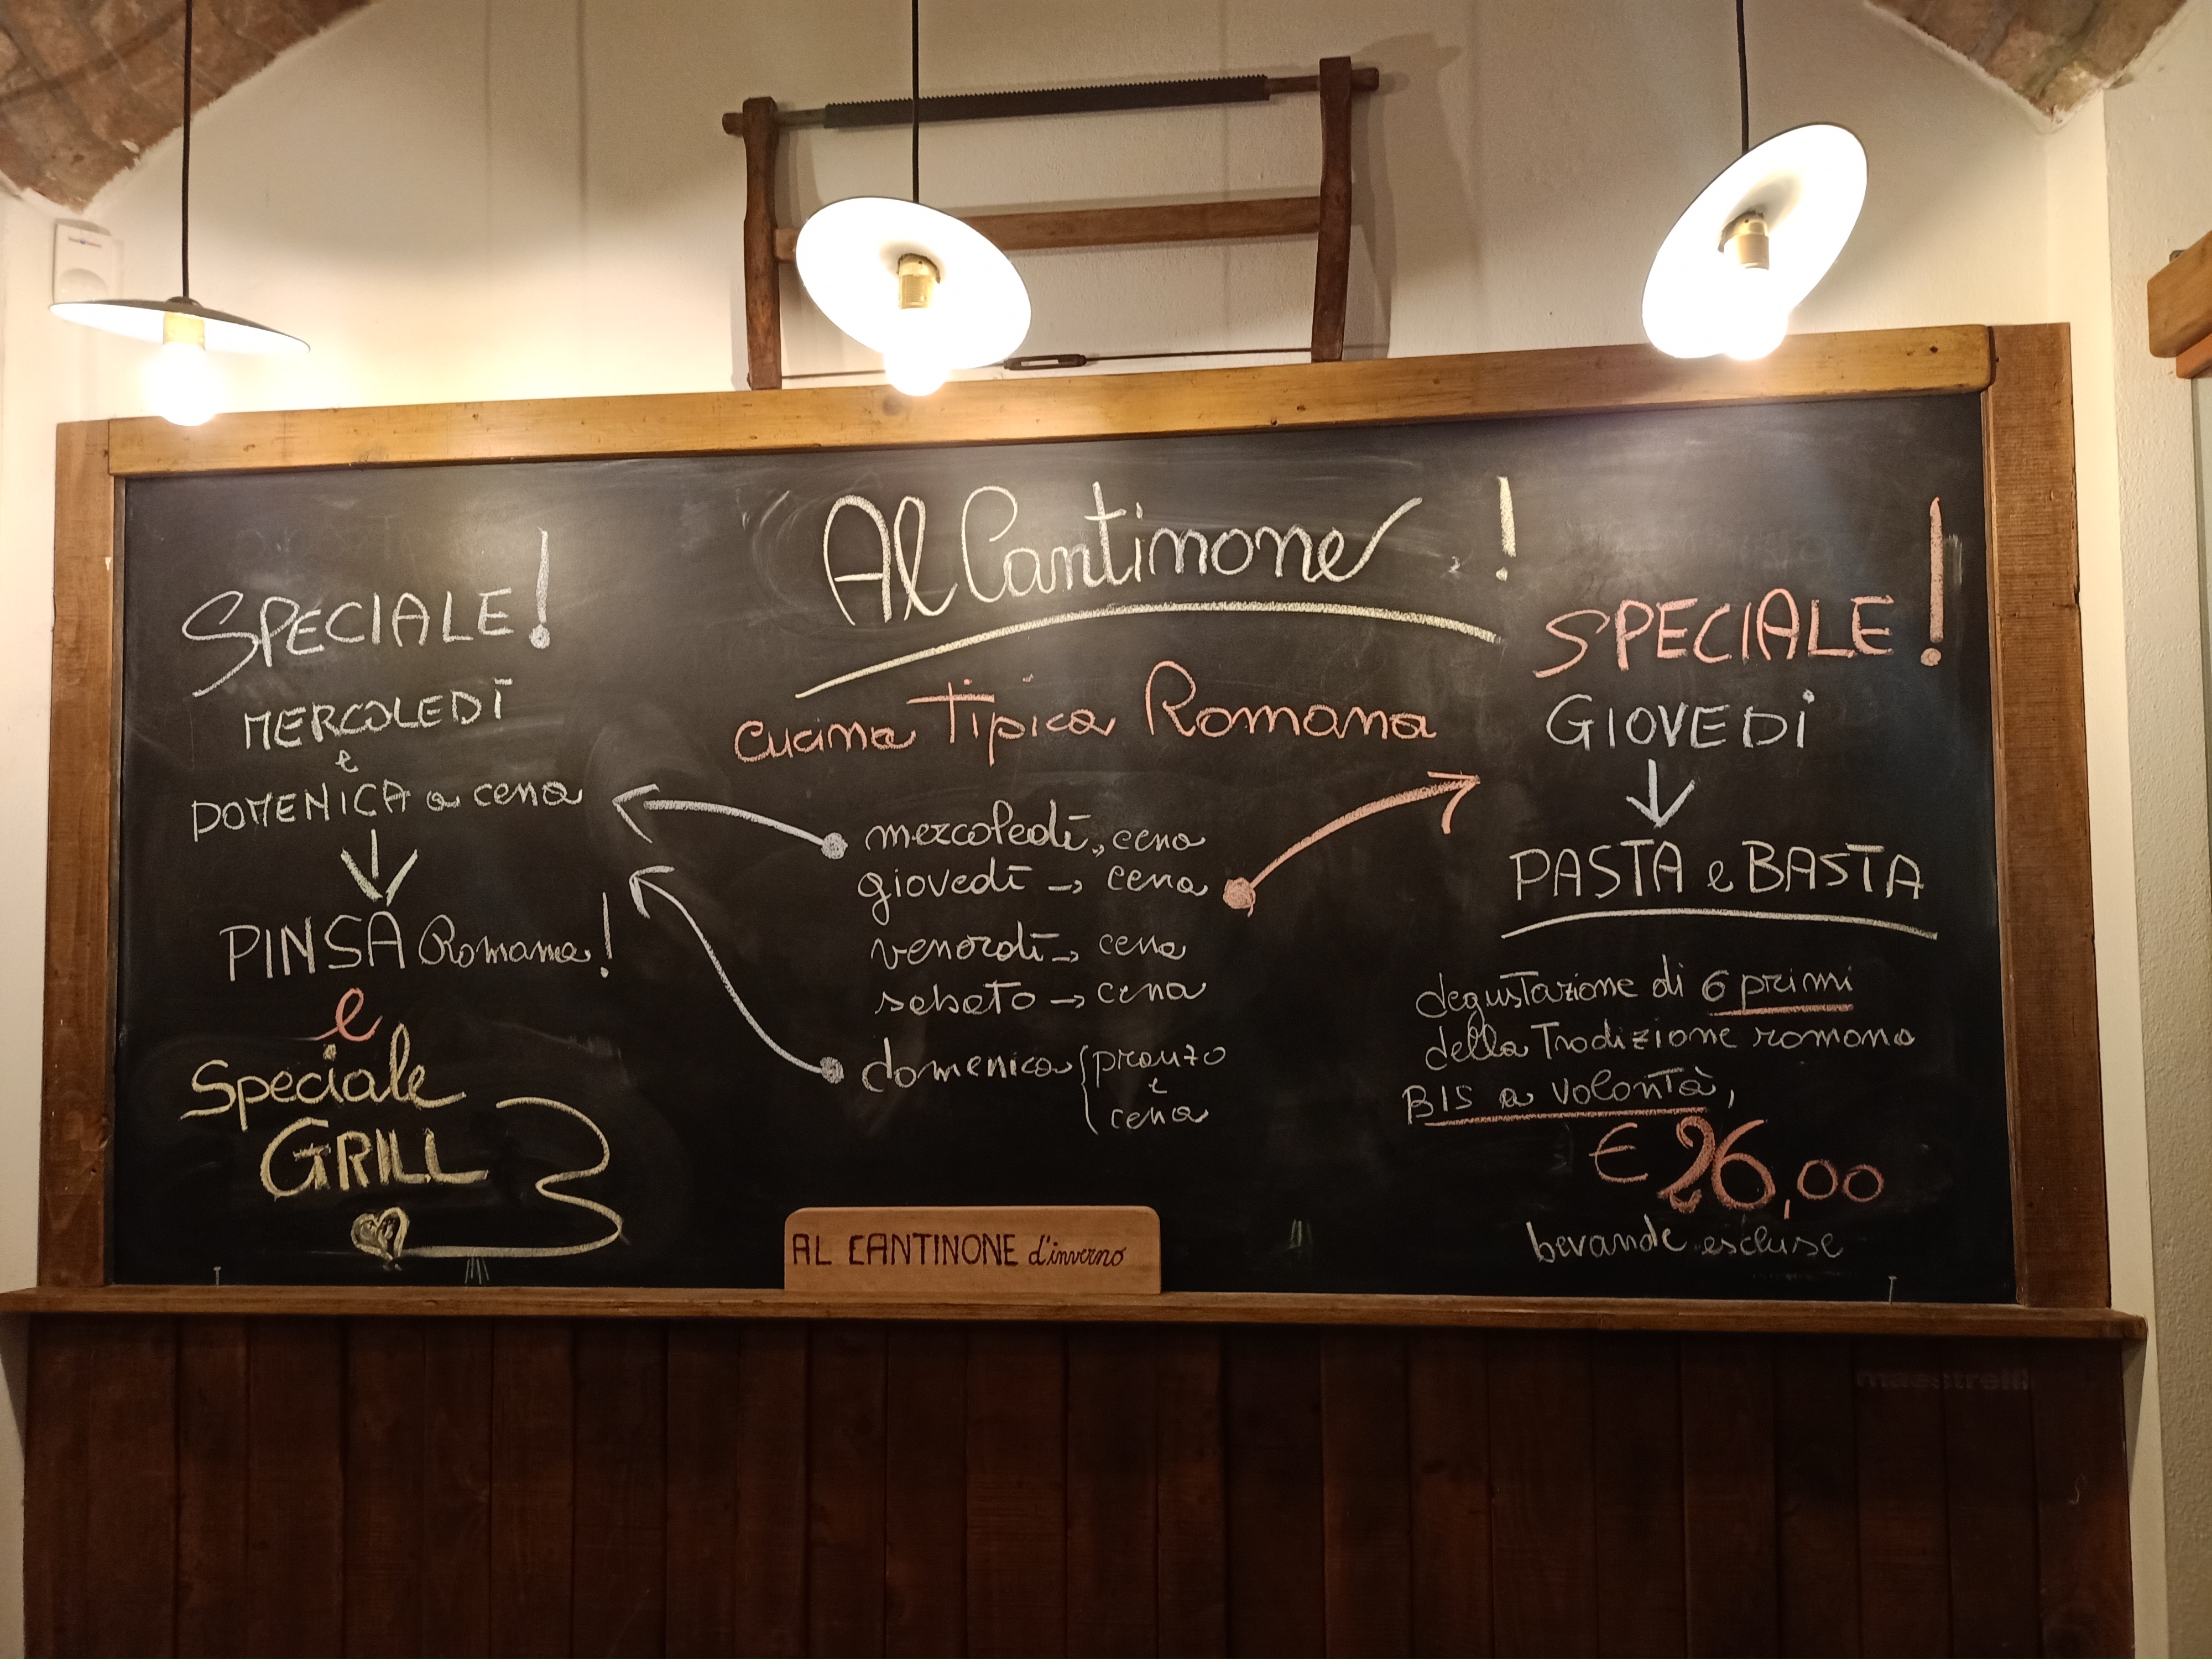 Al Cantinone !
cucina Tipica Romana
SPECIALE!
MERCOLEDÌ
e
DOMENICA a cena
PINSA Romana!
e
Speciale
GRILL
mercoledì → cena
giovedì → cena
venerdì → cena
sabato → cena
domenica { pranzo
e
cena
SPECIALE!
GIOVEDÌ
PASTA e BASTA
degustazione di 6 primi
della Tradizione romana
BIS a volontà,
€ 26,00
bevande escluse
AL CANTINONE d'inverno